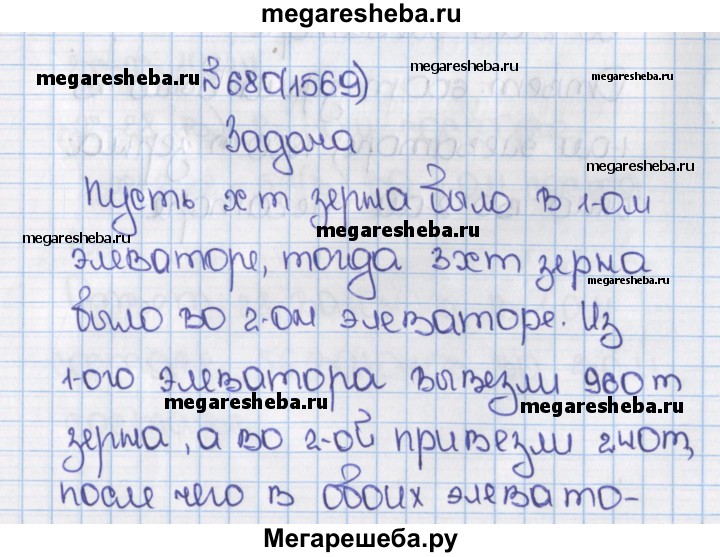 megaresheba.ru
megaresheba.ru №680(1569) megaresheba.ru
megaresheba.ru
Задача
megaresheba.ru
Пусть х т зерна было в 1-ом
megaresheba.ru
megaresheba.ru
элеваторе, тогда 3х т зерна
было во 2-ом элеваторе. Из
1-ого элеватора вывезли 960 т
megaresheba.ru
megaresheba.ru
зерна, а во 2-ой привезли 240 т,
после чего в обоих элевато-
Мегарешеба.ру